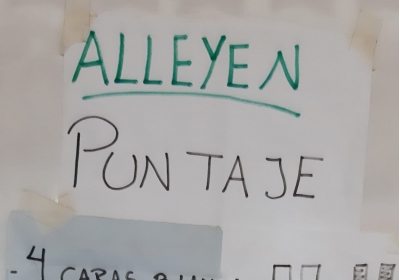 ALLEYEN
PUNTAJE
- 4 CARAS